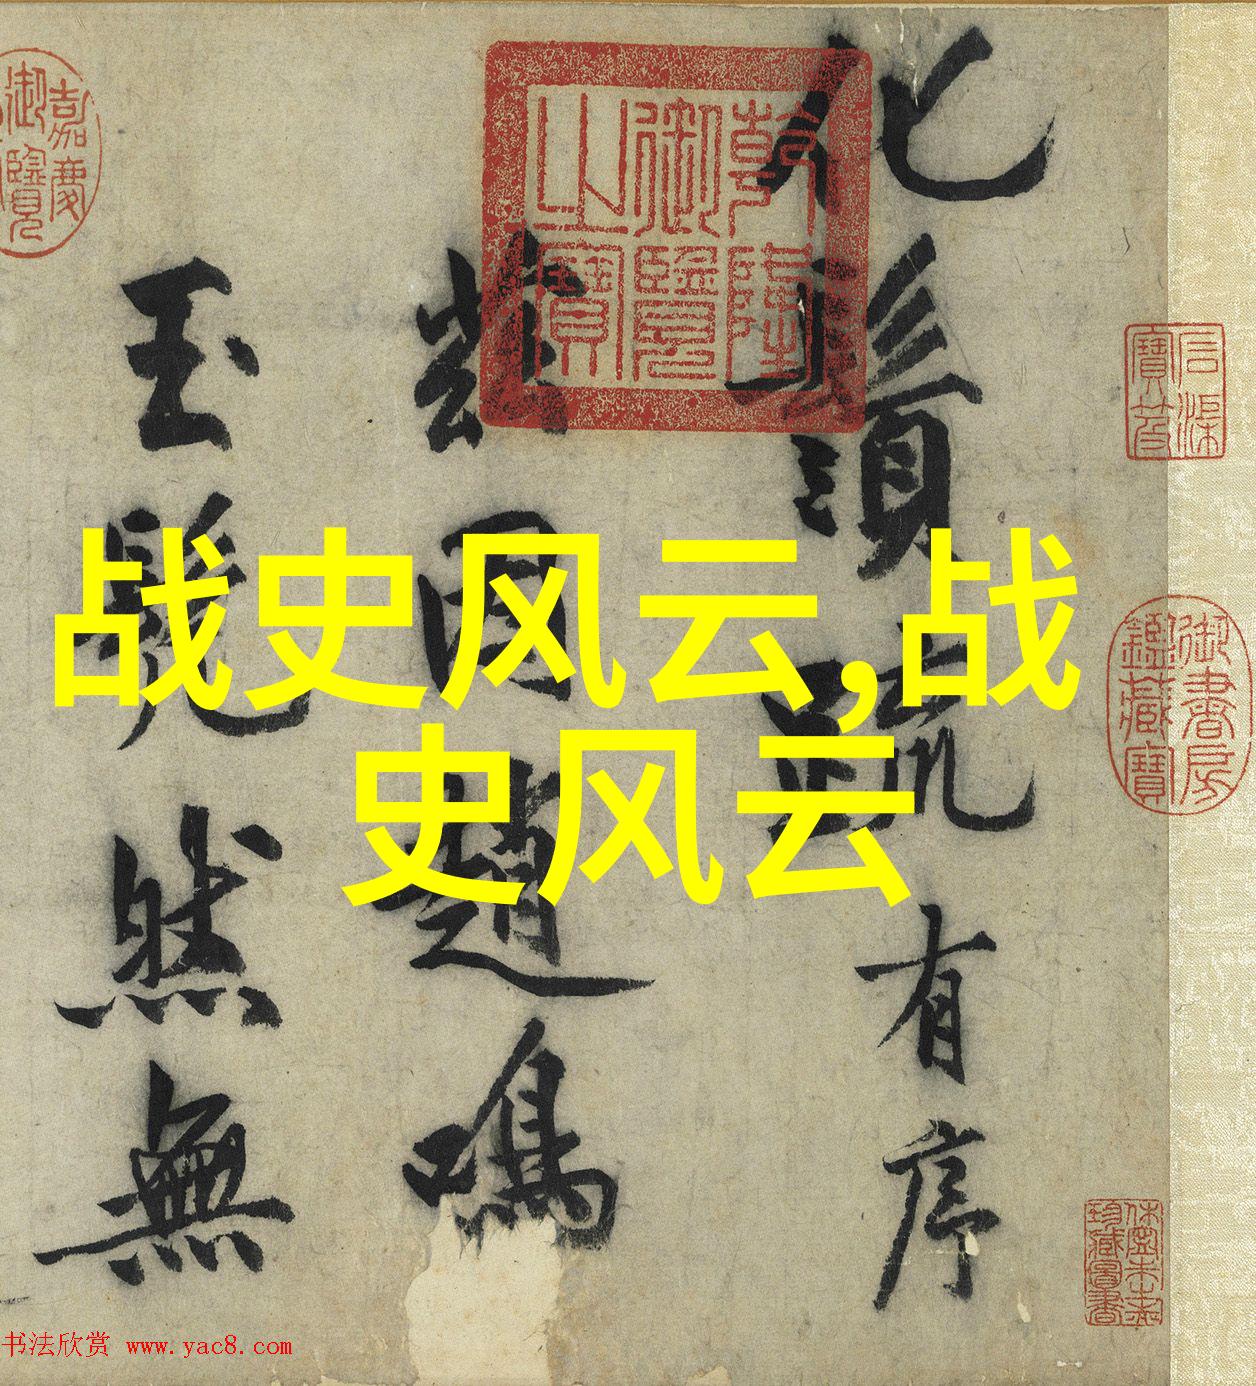 战史风云,战
史风云
化鬚疏有序
哉因趙鳴
玉髮然無
乾隆御覽之寶
嘉慶御覽
石渠寶笈
御書房鑑藏寶
书法欣赏 www.yac8.com